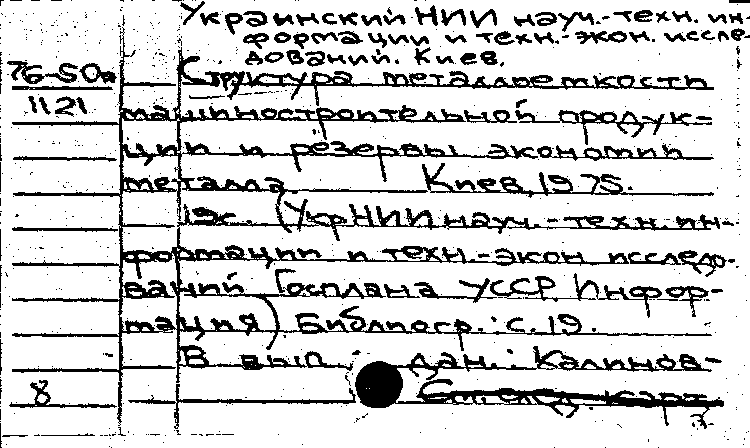 Украинский НИИ науч.-техн. ин-
формации и техн.-экон. иссле-
дований. Киев.
Структура металлоемкости
машиностроительной продук-
ции и резервы экономии
металла. Киев, 1975.
19с. (УкрНИИ науч.-техн. ин-
формации и техн.-экон. исследо-
ваний Госплана УССР. Информ-
мация) Библиогр.: с. 19.
В вып. дан.: Калинов-
См. след. карт.
76-50
1121
8